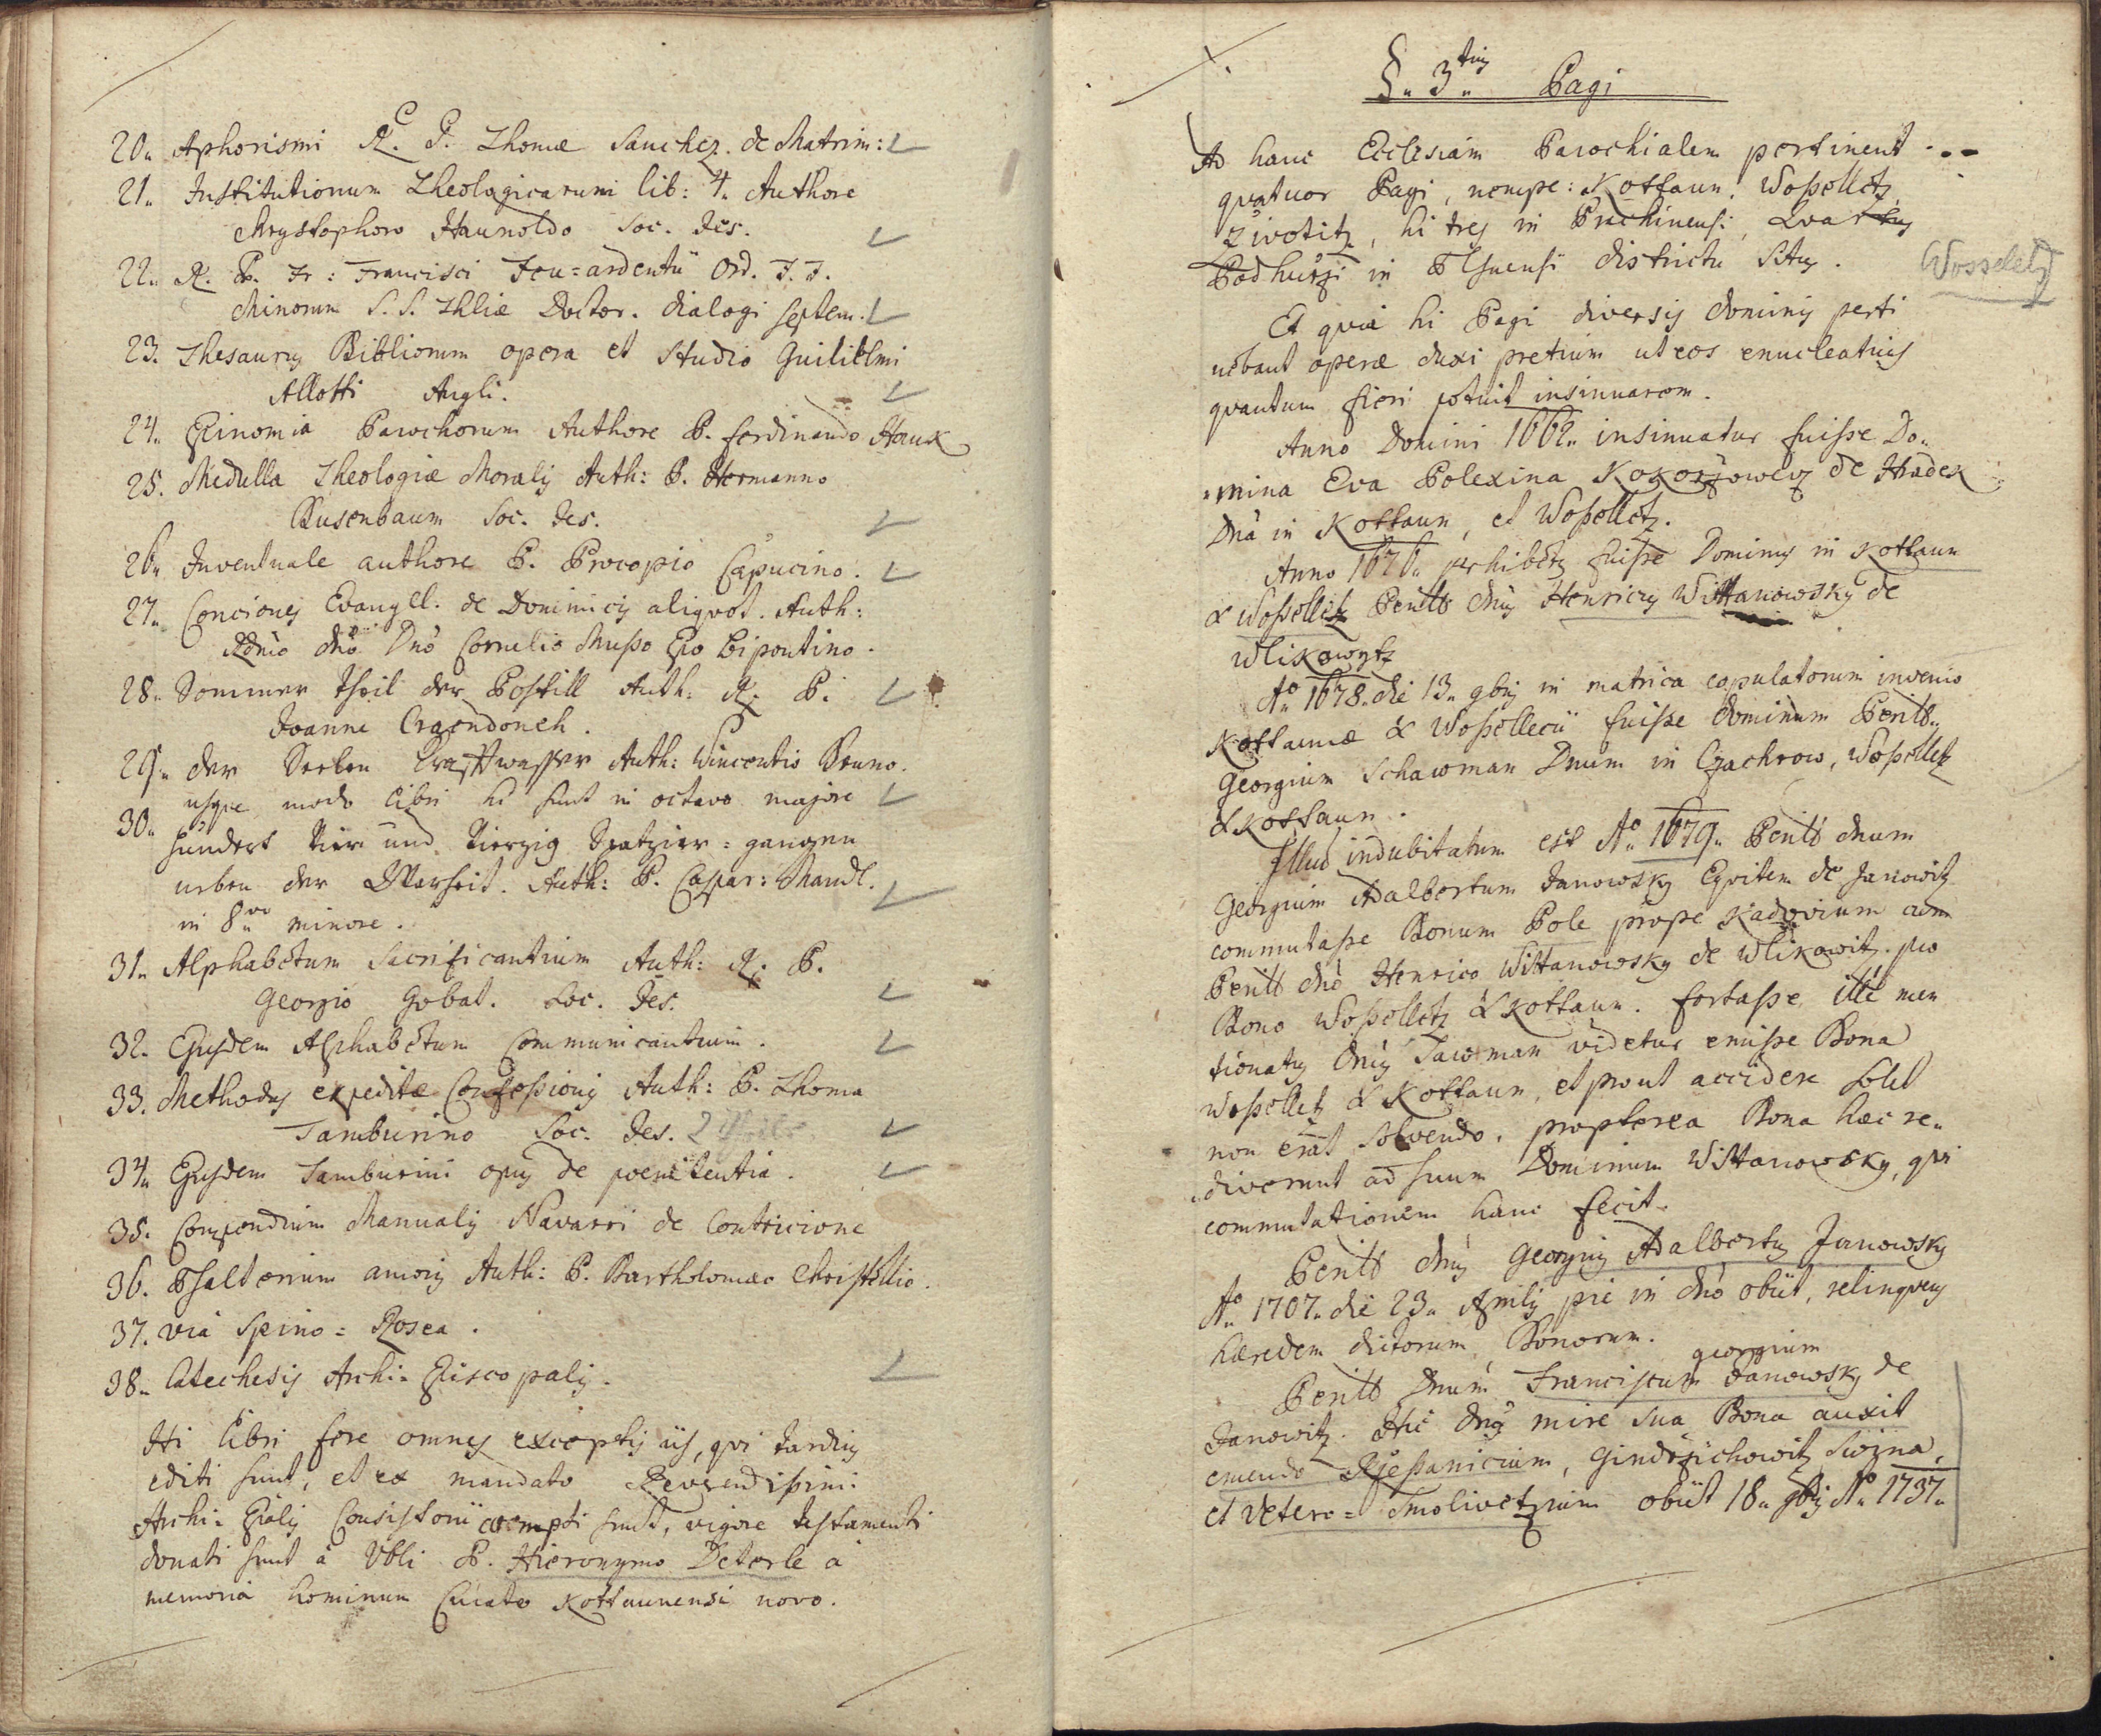 20. Aphorismi R. P. Thomæ Sanchez. de Matrim:
21. Institutionum Theologicarum lib: 4. Authore
Chrystophoro Haunoldo Soc. Jes.
22. R. P. Fr: Francisci Feu=ardentii Ord. F. F.
Minorum S. S. Thliæ Doctor. dialogi septem.
23. Thesaurus Bibliorum opera et studio Guilielmi
Allotti Angli.
24. Epinomia Parochorum Authore P. Ferdinando Hauk
25. Medulla Theologiæ Moralis Auth: P. Hermanno
Busenbaum Soc. Jes.
26. Juventuale authore P. Procopio Capucino.
27. Conciones Evangel. de Dominicis aliqvot. Auth:
Rdmo dno Dno Cornelio Musso Epo bipontino.
28. Sommer theil der Postill Auth: R. P.
Joanne Craendonch.
29. der Seelen Krafftwasser Auth: Vincentio Bruno.
usqve modo libri hi sunt in octavo majore
30. hundert Vier und Vierzig Spatzier=gangen
neben der Warheit. Auth: P. Caspar: Mandl.
in 8vo minore.
31. Alphabetum Sacrificantium Auth: R. P.
Georgio Gobat. Soc. Jes.
32. Ejusdem Alphabetum Communicantium.
33. Methodus expeditæ Confessionis Auth: P. Thoma
Tamburino Soc. Jes. 2
34. Ejusdem Tamburini opus de poenitentia.
35. Compendium Manualis Navarri de Contricione
36. Psalterium amoris Auth: P. Bartholomæo Christellio.
37. via Spino=Rosea.
38. Catechesis Archi=Episcopalis.
Hi libri fere omnes exceptis iis, qvi tardius
editi sunt, et ex mandato Reverendissimi
Archi=Eplis Consistorii coempti sunt, vigore testamenti
donati sunt à Vbli P. Hieronymo Deterle à
memoria hominum Curato Kottaunensi novo.
§. 3tius Pagi
Ad hanc Ecclesiam Parochialem pertinent
qvatuor Pagi, nempe: Kottaun, Woßelletz,
Ziwotitz, hi tres in Prachinensi, Qvartus
Podhurzi in Plsnensi districtu situs.
Wosseletz
Et qvia hi Pagi diversis dominis perti
nebant operæ duxi pretium ut eos enucleatius
qvantum fieri potuit insinuarem.
Anno Domini 1662. insinuatur fuisse Do=
mina Eva Polexina Kokorzowcz de Hradek
Dna in Kottaun, et Woßelletz.
Anno 1676. perhibetr fuisse Dominus in Kottaun
& Woßelletz Perills dnus Henricus Wittanowsky de
Wlikowytz
Ao 1678. die 13. 9bris in matrica copulatorum invenio
Kottaunæ & Woßellecii fuisse dominum Perills.
Georgium Schawman Dnum in Czachrow, Woßelletz
& Kottaun.
Illud indubitatum est Ao 1679. Perills dnum
Georgium Adalbertum Janowsky Eqvitem de Janowitz
commutasse Bonum Pole prope Kadovium cum
Perills dno Henrico Wittanowsky de Wlikowitz pro
Bono Woßelletz & Kottaun. fortasse ille men
tionatus dnus Sawman videtur emisse Bona
Woßelletz & Kottaun, et prout accidere solet
non erat solvendo, propterea Bona hæc re=
diverunt ad suum Dominum Wittanowsky, qvi
commutationem hanc fecit.
Perills dnus Georgius Adalbertus Janowsky
Ao 1707. die 23. Aprilis pie in dno obiit, relinqvens
hæredem dictorum Bonorum.
georgium
Perills Dnum Franciscum Janowsky de
Janowitz. Hic dnus mire sua Bona auxit
emendo Rzesanicium, Gindrzichowitz, Swizna,
et Vetero=Smolivetzium obiit 18. 9bris Ao 1737.